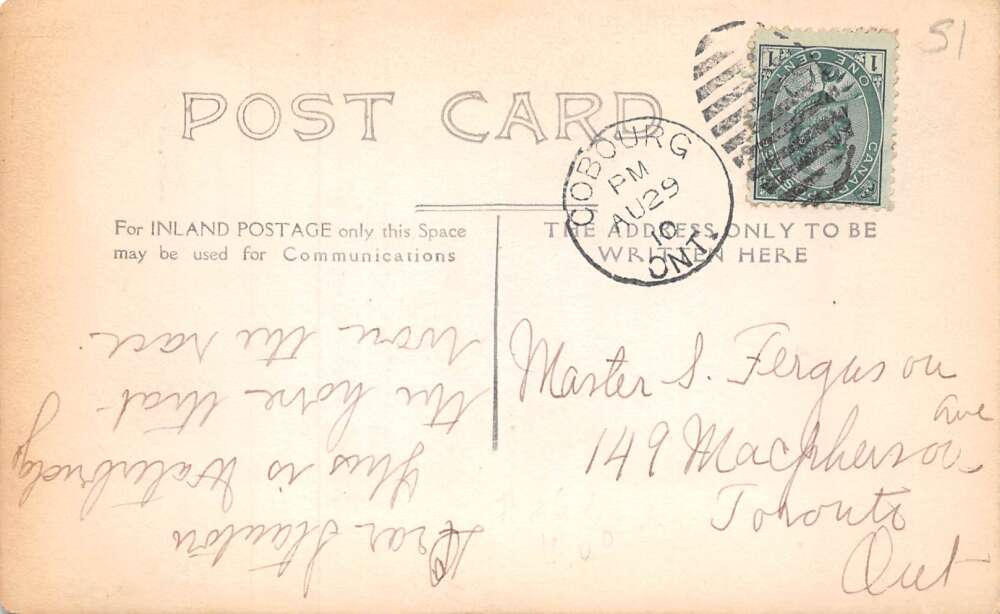 51
ONE CENT
1 1
CANADA
POST CARD
COBOURG
PM
AU 29
10
ONT.
For INLAND POSTAGE only this Space
may be used for Communications
THE ADDRESS ONLY TO BE
WRITTEN HERE
Dear Stanton
This is Waterbridge
the horse that
won the race.
Master S. Ferguson
149 Macpherson Ave
Toronto
Ont